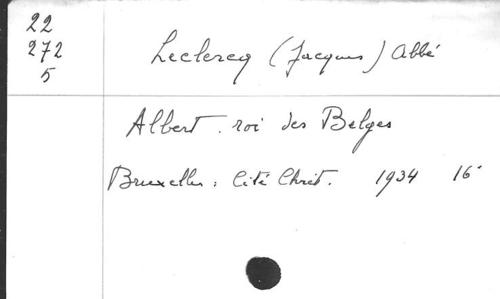 22
272
5
Leclercq (Jacques) Abbé
Albert. roi des Belges
Bruxelles : Cité Chrét. 1934 16°